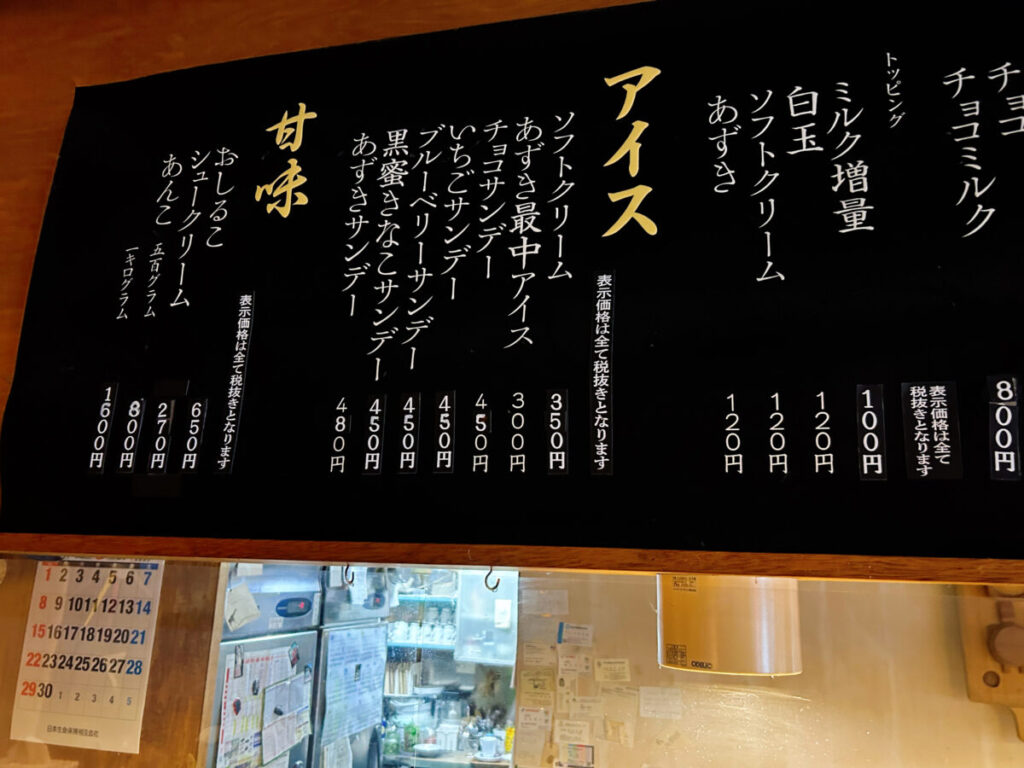 チョコ
チョコミルク
800円
トッピング
表示価格は全て
税抜きとなります
ミルク増量
100円
白玉
120円
ソフトクリーム
120円
あずき
120円
アイス
表示価格は全て税抜きとなります
ソフトクリーム
350円
あずき最中アイス
300円
チョコサンデー
450円
いちごサンデー
450円
ブルーベリーサンデー
450円
黒蜜きなこサンデー
450円
あずきサンデー
480円
甘味
表示価格は全て税抜きとなります
おしるこ
650円
シュークリーム
270円
あんこ
五百グラム
800円
一キログラム
1600円
1 2 3 4 5 6 7
8 9 10 11 12 13 14
15 16 17 18 19 20 21
22 23 24 25 26 27 28
29 30 1 2 3 4 5
日本生命保険相互会社